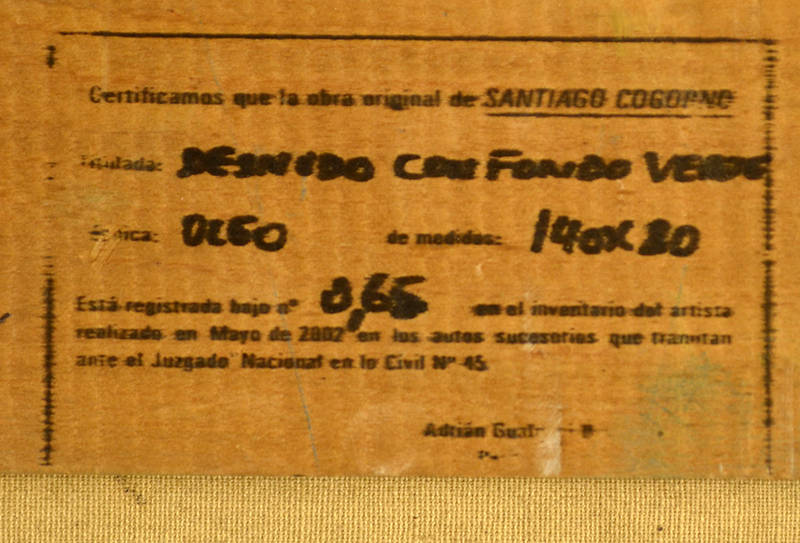 Certificamos que la obra original de SANTIAGO COGORNO
Titulada: DESNUDO CON FONDO VERDE
Técnica: OLEO de medidas: 140X80
Está registrada bajo nº 0,65 en el inventario del artista
realizado en Mayo de 2002 en los autos sucesorios que tramitan
ante el Juzgado Nacional en lo Civil Nº 45
Adrián